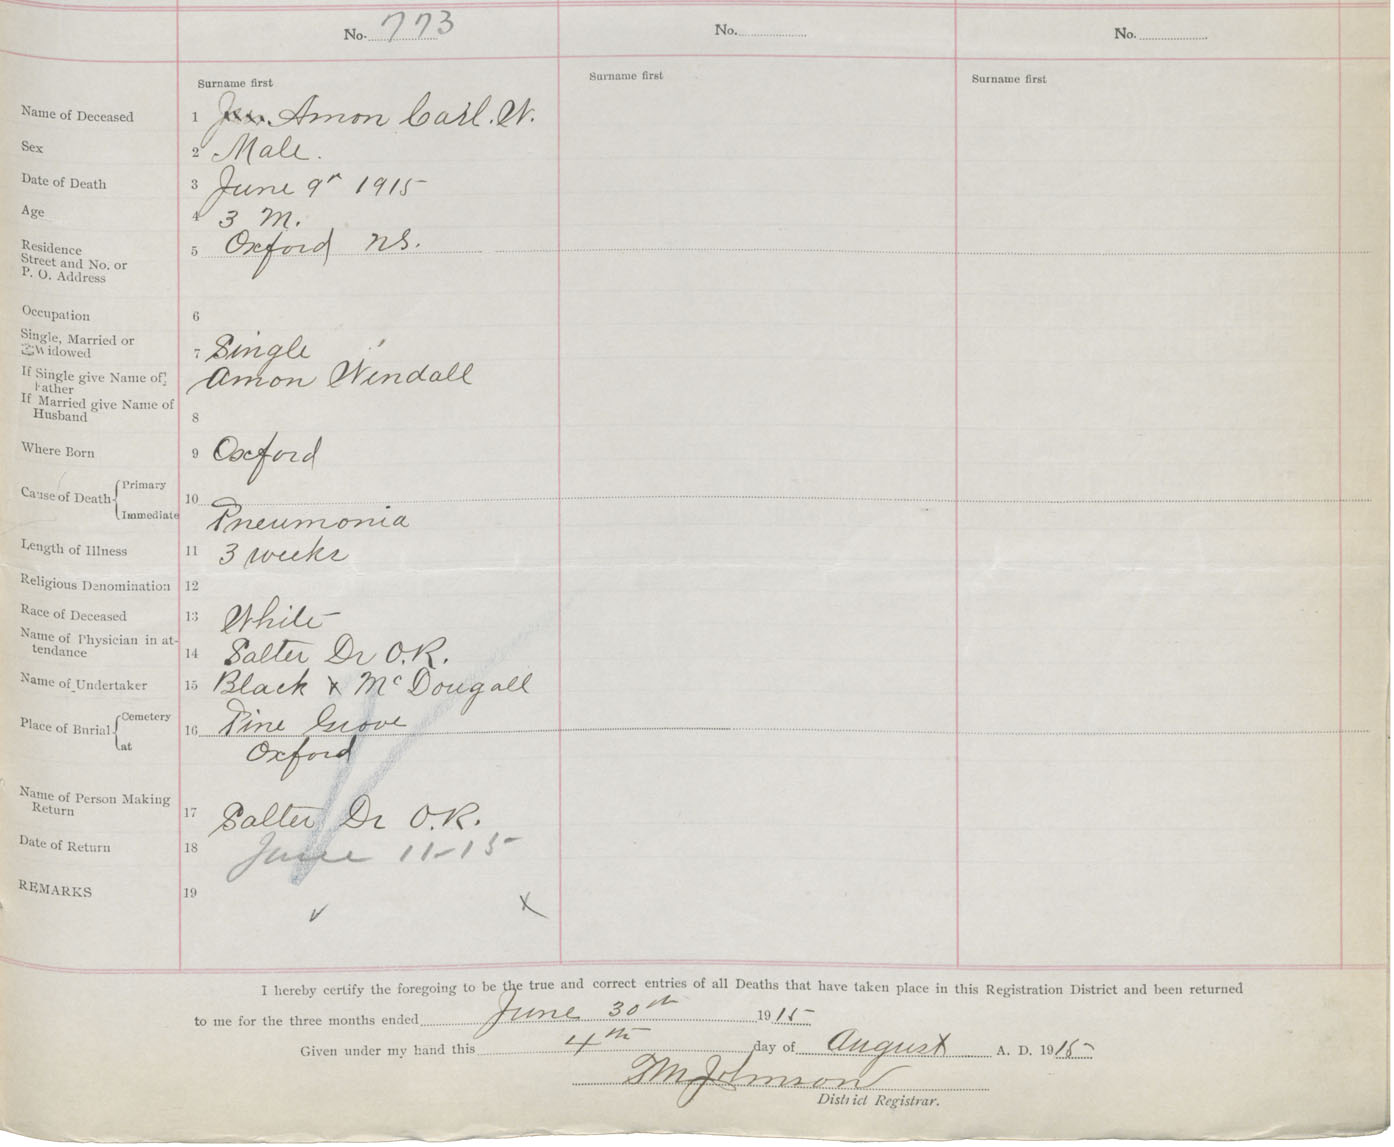 No. 773 No. No.
Surname first Surname first Surname first
Name of Deceased 1 Amon Carl. W.
Sex 2 Male.
Date of Death 3 June 9th 1915
Age 4 3 M.
Residence
Street and No. or
P. O. Address 5 Oxford NS.
Occupation 6
Single, Married or
Widowed 7 Single
If Single give Name of
Father Amon Windall
If Married give Name of
Husband 8
Where Born 9 Oxford
Cause of Death Primary 10
Immediate Pneumonia
Length of Illness 11 3 weeks
Religious Denomination 12
Race of Deceased 13 White
Name of Physician in at-
tendance 14 Salter Dr O.R.
Name of Undertaker 15 Black & McDougall
Place of Burial Cemetery 16 Pine Grove
at Oxford
Name of Person Making
Return 17 Salter Dr O.R.
Date of Return 18 June 11-15
REMARKS 19
I hereby certify the foregoing to be the true and correct entries of all Deaths that have taken place in this Registration District and been returned
to me for the three months ended June 30th 1915
Given under my hand this 4th day of August A. D. 1915
Johnson
District Registrar.